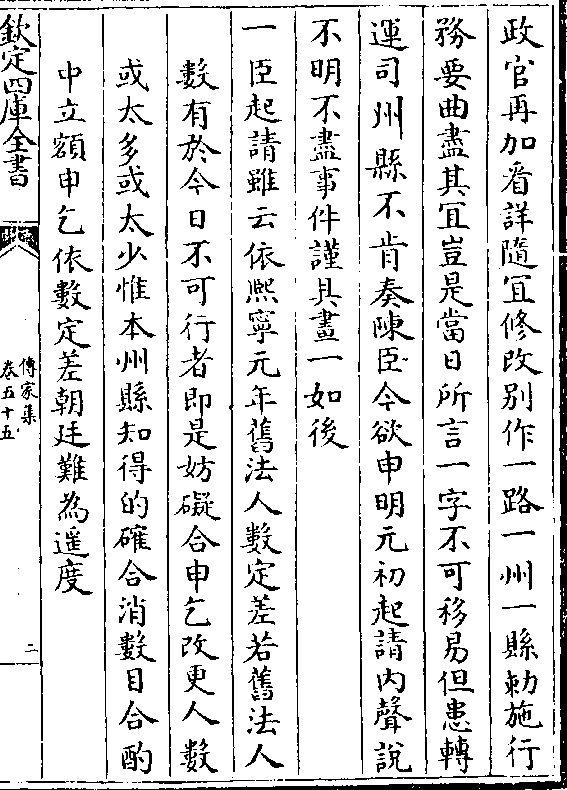 政官再加看詳隨宜修改别作一路一州一縣勅施行
務要曲盡其宜豈是當日所言一字不可移易但患轉
運司州縣不肯奏陳臣今欲申明元初起請内聲說
不明不盡事件謹具畫一如後
一臣起請雖云依熙寧元年舊法人數定差若舊法人
數有於今日不可行者即是妨礙合申乞改更人數
或太多或太少惟本州縣知得的確合消數目合酌
中立額申乞依數定差朝廷難為遥度
欽定四庫全書
傳家集
卷五十五
二